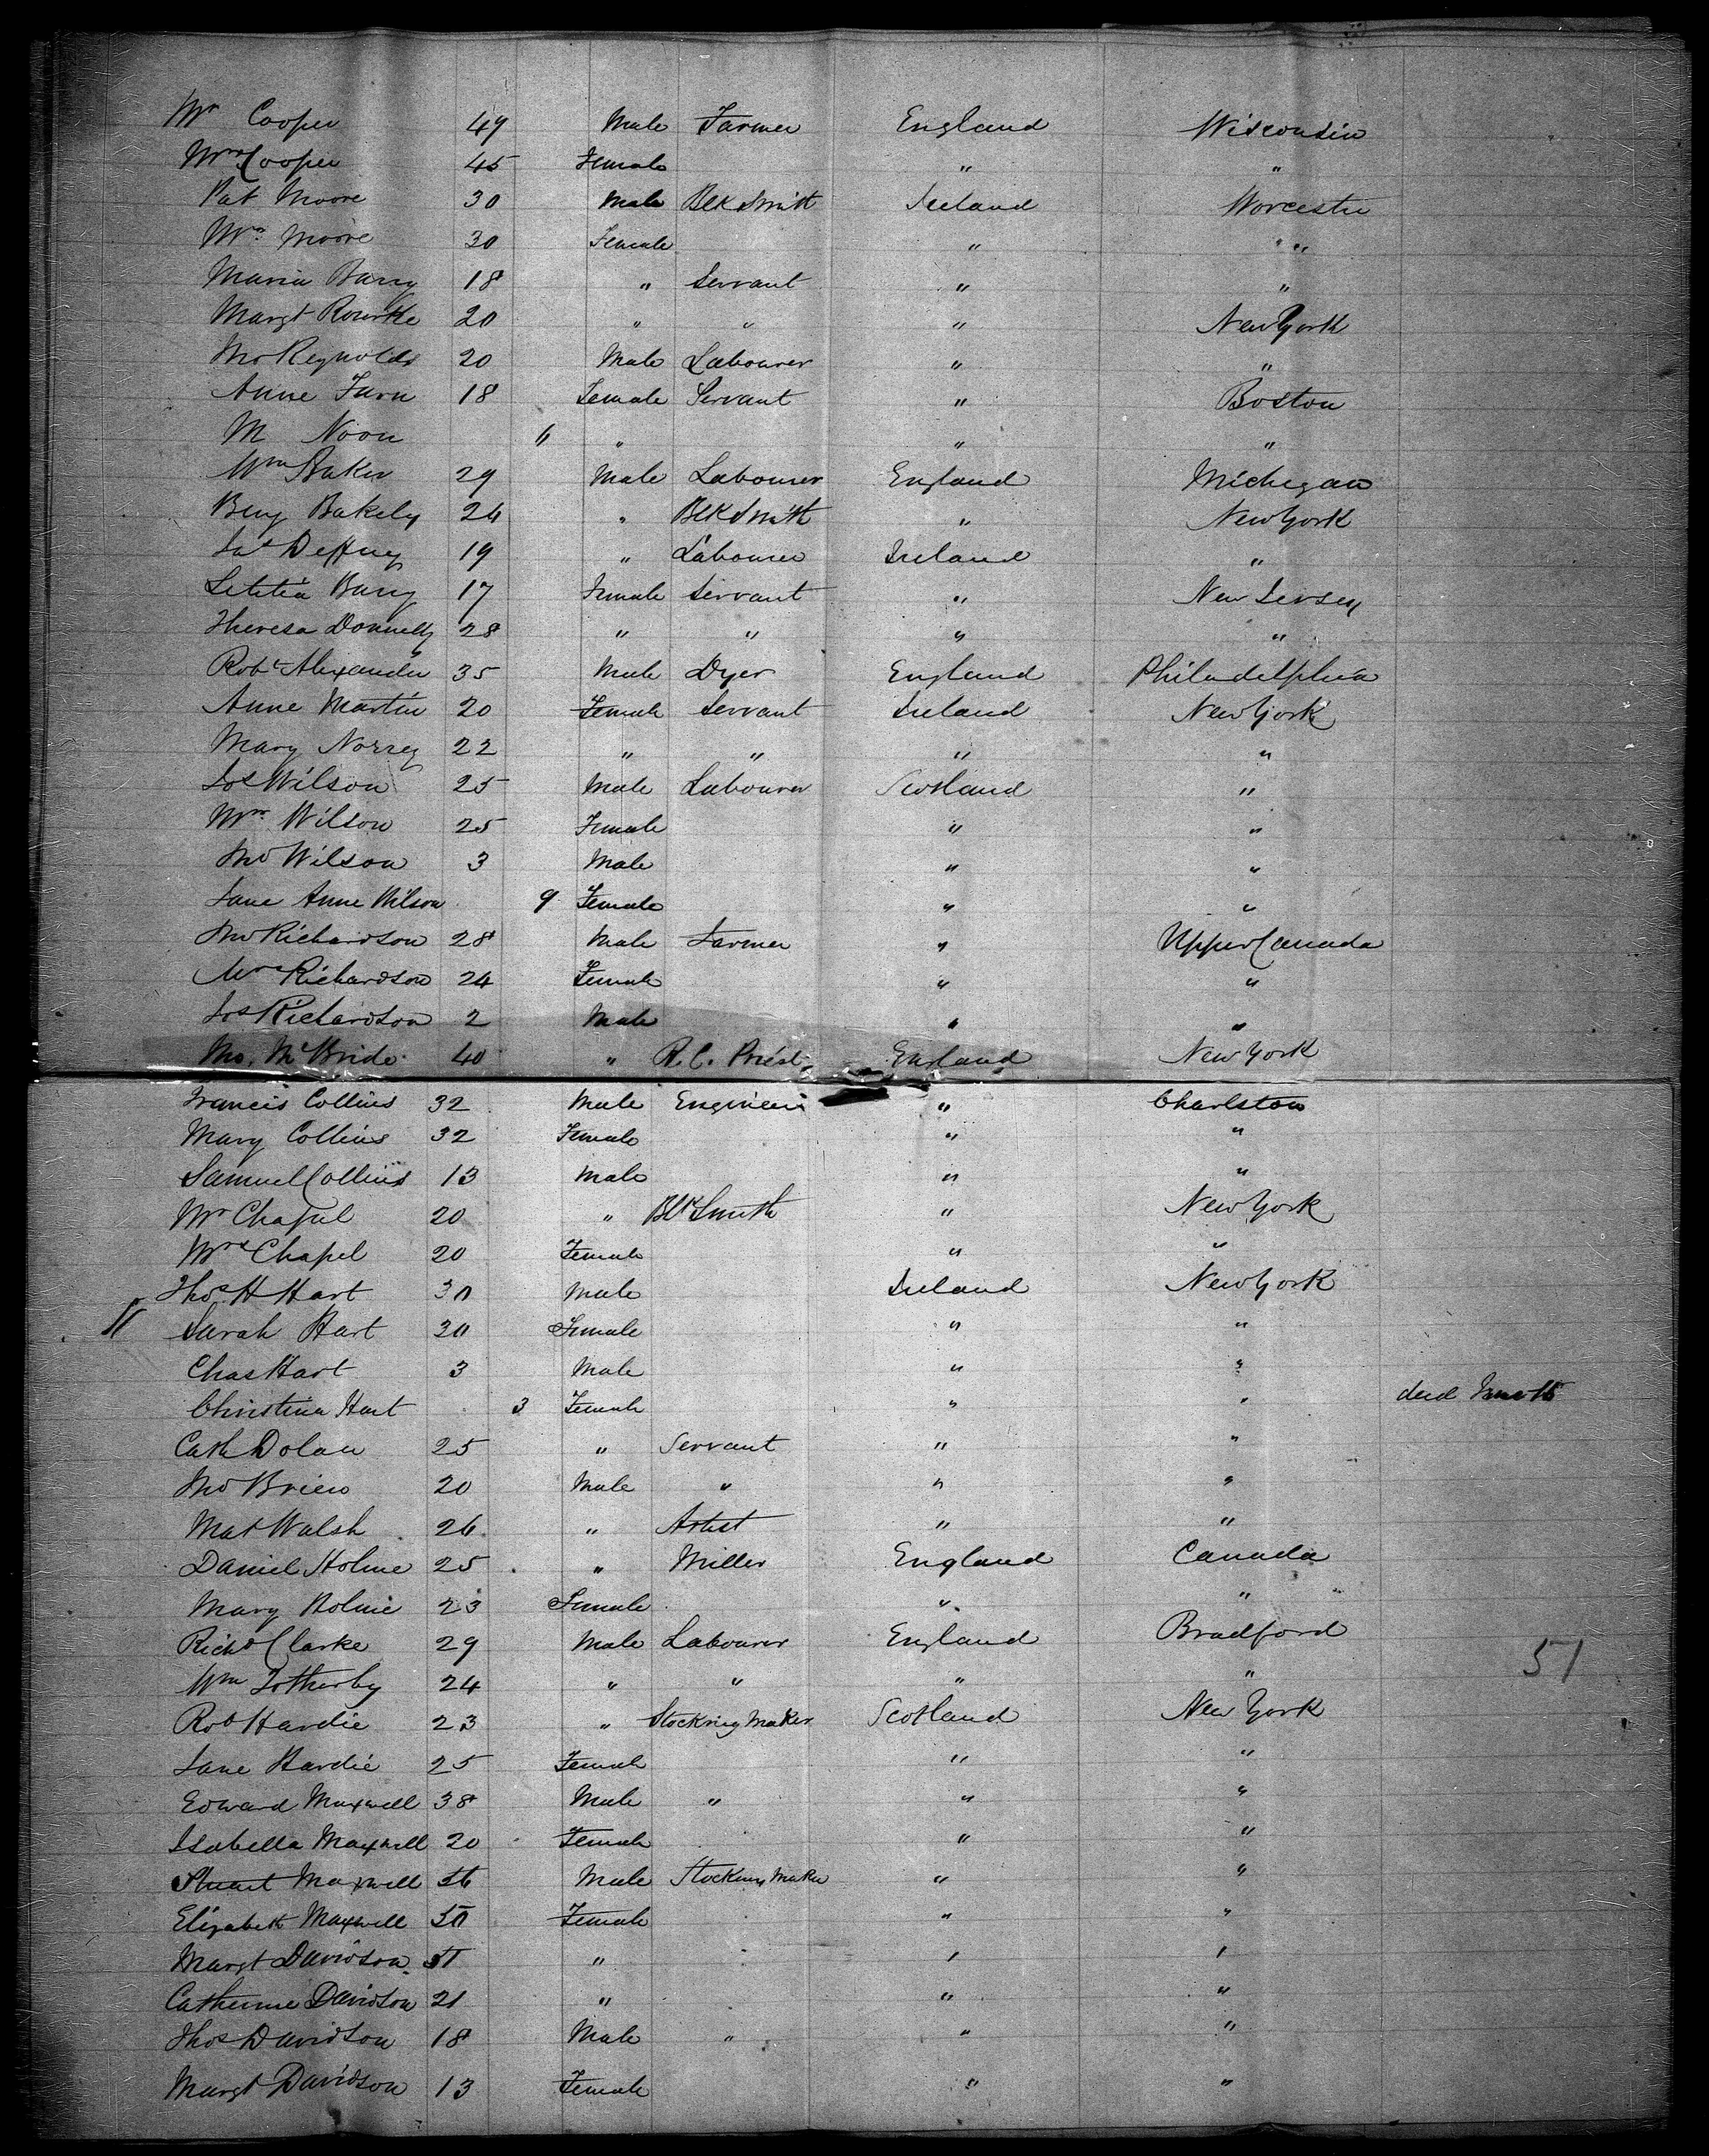 Mr Cooper 49 Male Farmer England Wisconsin
Mrs Cooper 45 Female " "
Pat Moore 30 Male Blk Smith Ireland Worcester
Mrs Moore 30 Female " "
Maria Barry 18 " Servant " "
Margt Rourke 20 " " " New York
Jno Reynolds 20 Male Labourer " "
Anne Furn 18 Female Servant " Boston
M Noon 6 " " "
Wm Baker 29 Male Labourer England Michigan
Benj Bakely 24 " Blk Smith " New York
Jas 19 " Labourer Ireland "
Letitia Barry 17 Female Servant " New Jersey
Theresa Donnelly 28 " " " "
Robt Alexander 35 Male Dyer England Philadelphia
Anne Martin 20 Female Servant Ireland New York
Mary Norrey 22 " " " "
Jos Wilson 25 Male Labourer Scotland "
Mrs Wilson 25 Female " "
Jno Wilson 3 Male " "
Jane Anne Wilson 9 Female " "
Jno Richardson 28 Male Farmer " Upper Canada
Mrs Richardson 24 Female " "
Jos Richardson 2 Male " "
McBride 40 " R.C. Priest England New York
Francis Collins 32 Male Engineer " Charlston
Mary Collins 32 Female " "
Samuel Collins 13 Male " "
Mr Chapel 20 " Blk Smith " New York
Mrs Chapel 20 Female " "
Thos H Hart 30 Male Ireland New York
Sarah Hart 30 Female " "
Chas Hart 3 Male " "
Christina Hart 3 Female " " died
Cath Dolan 25 " Servant " "
Jno Brien 20 Male " " "
Mat Walsh 26 " Artist " "
Daniel Holme 25 " Miller England Canada
Mary Holme 23 Female " "
Richd Clarke 29 Male Labourer England Bradford
51
Wm Lotherby 24 " " " "
Robt Hardie 23 " Stocking Maker Scotland New York
Jane Hardie 25 Female " "
Edward Maxwell 38 Male " " "
Isabella Maxwell 20 Female " "
Stuart Maxwell 56 Male Stocking Maker " "
Elizabeth Maxwell 50 Female " "
Margt Davidson 51 " " "
Catherine Davidson 21 " " "
Thos Davidson 18 Male " " "
Margt Davidson 13 Female " "